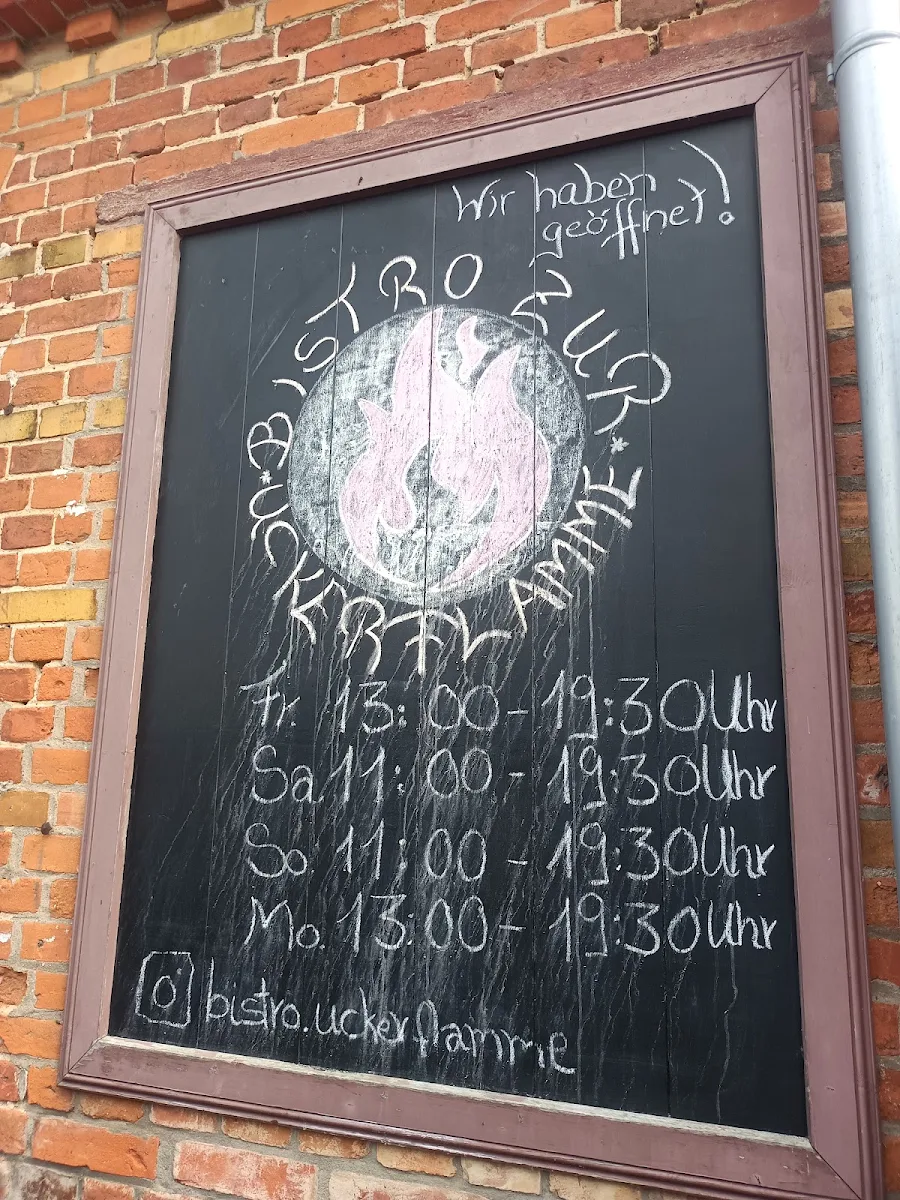 Wir haben
geöffnet!
BISTRO ZUR
* UCKERFLAMME *
Fr. 13:00 - 19:30 Uhr
Sa 11:00 - 19:30 Uhr
So 11:00 - 19:30 Uhr
Mo. 13:00 - 19:30 Uhr
bistro.uckerflamme